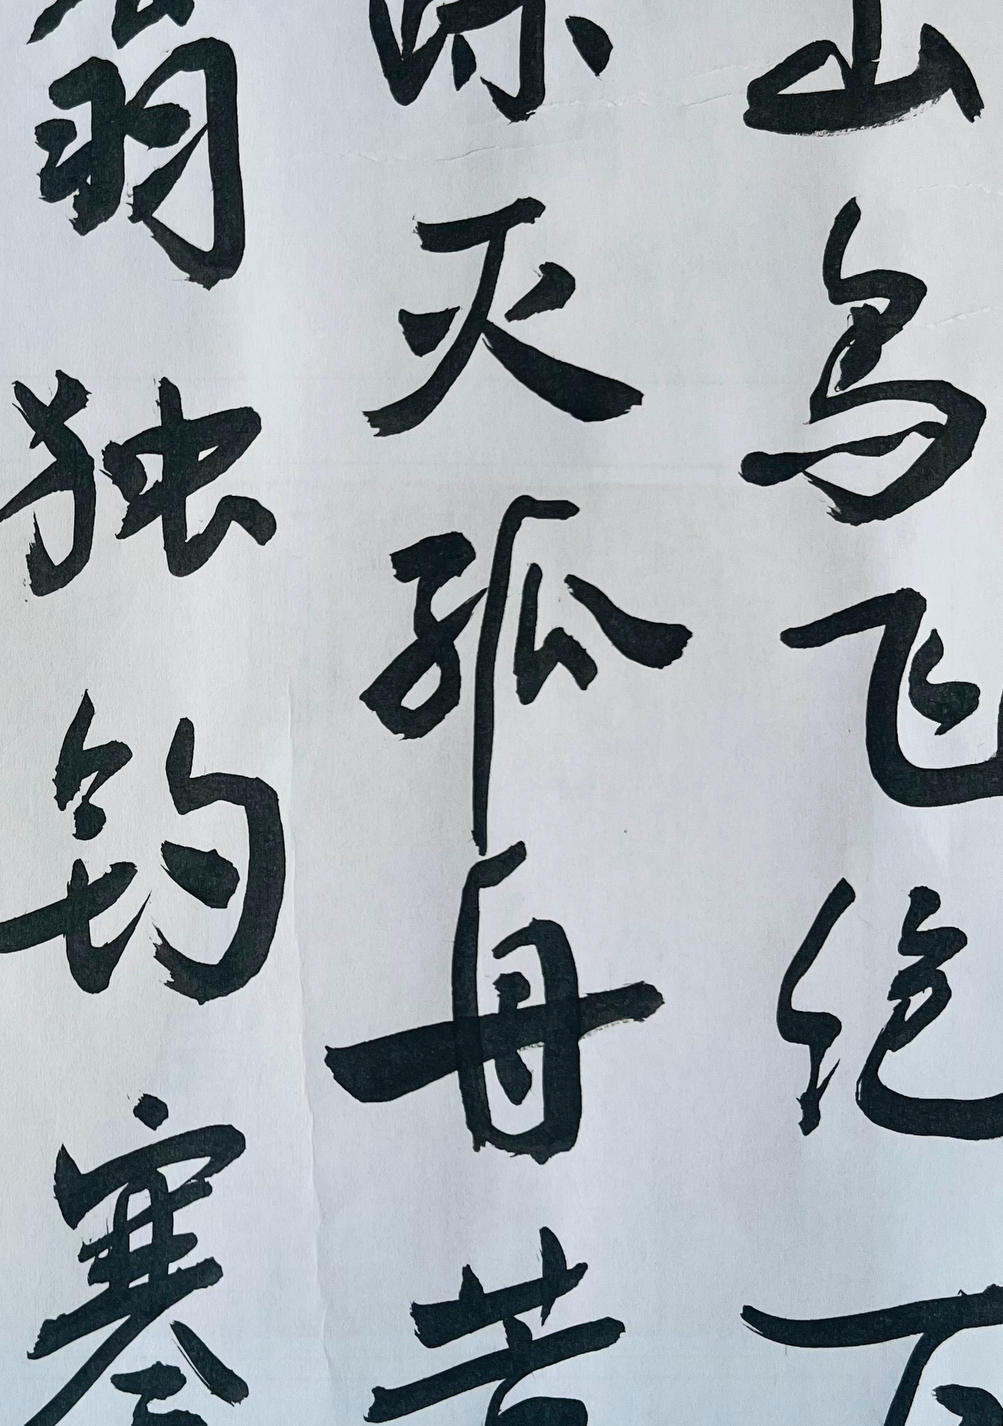 山鸟飞绝万
灭孤舟
翁独钓寒